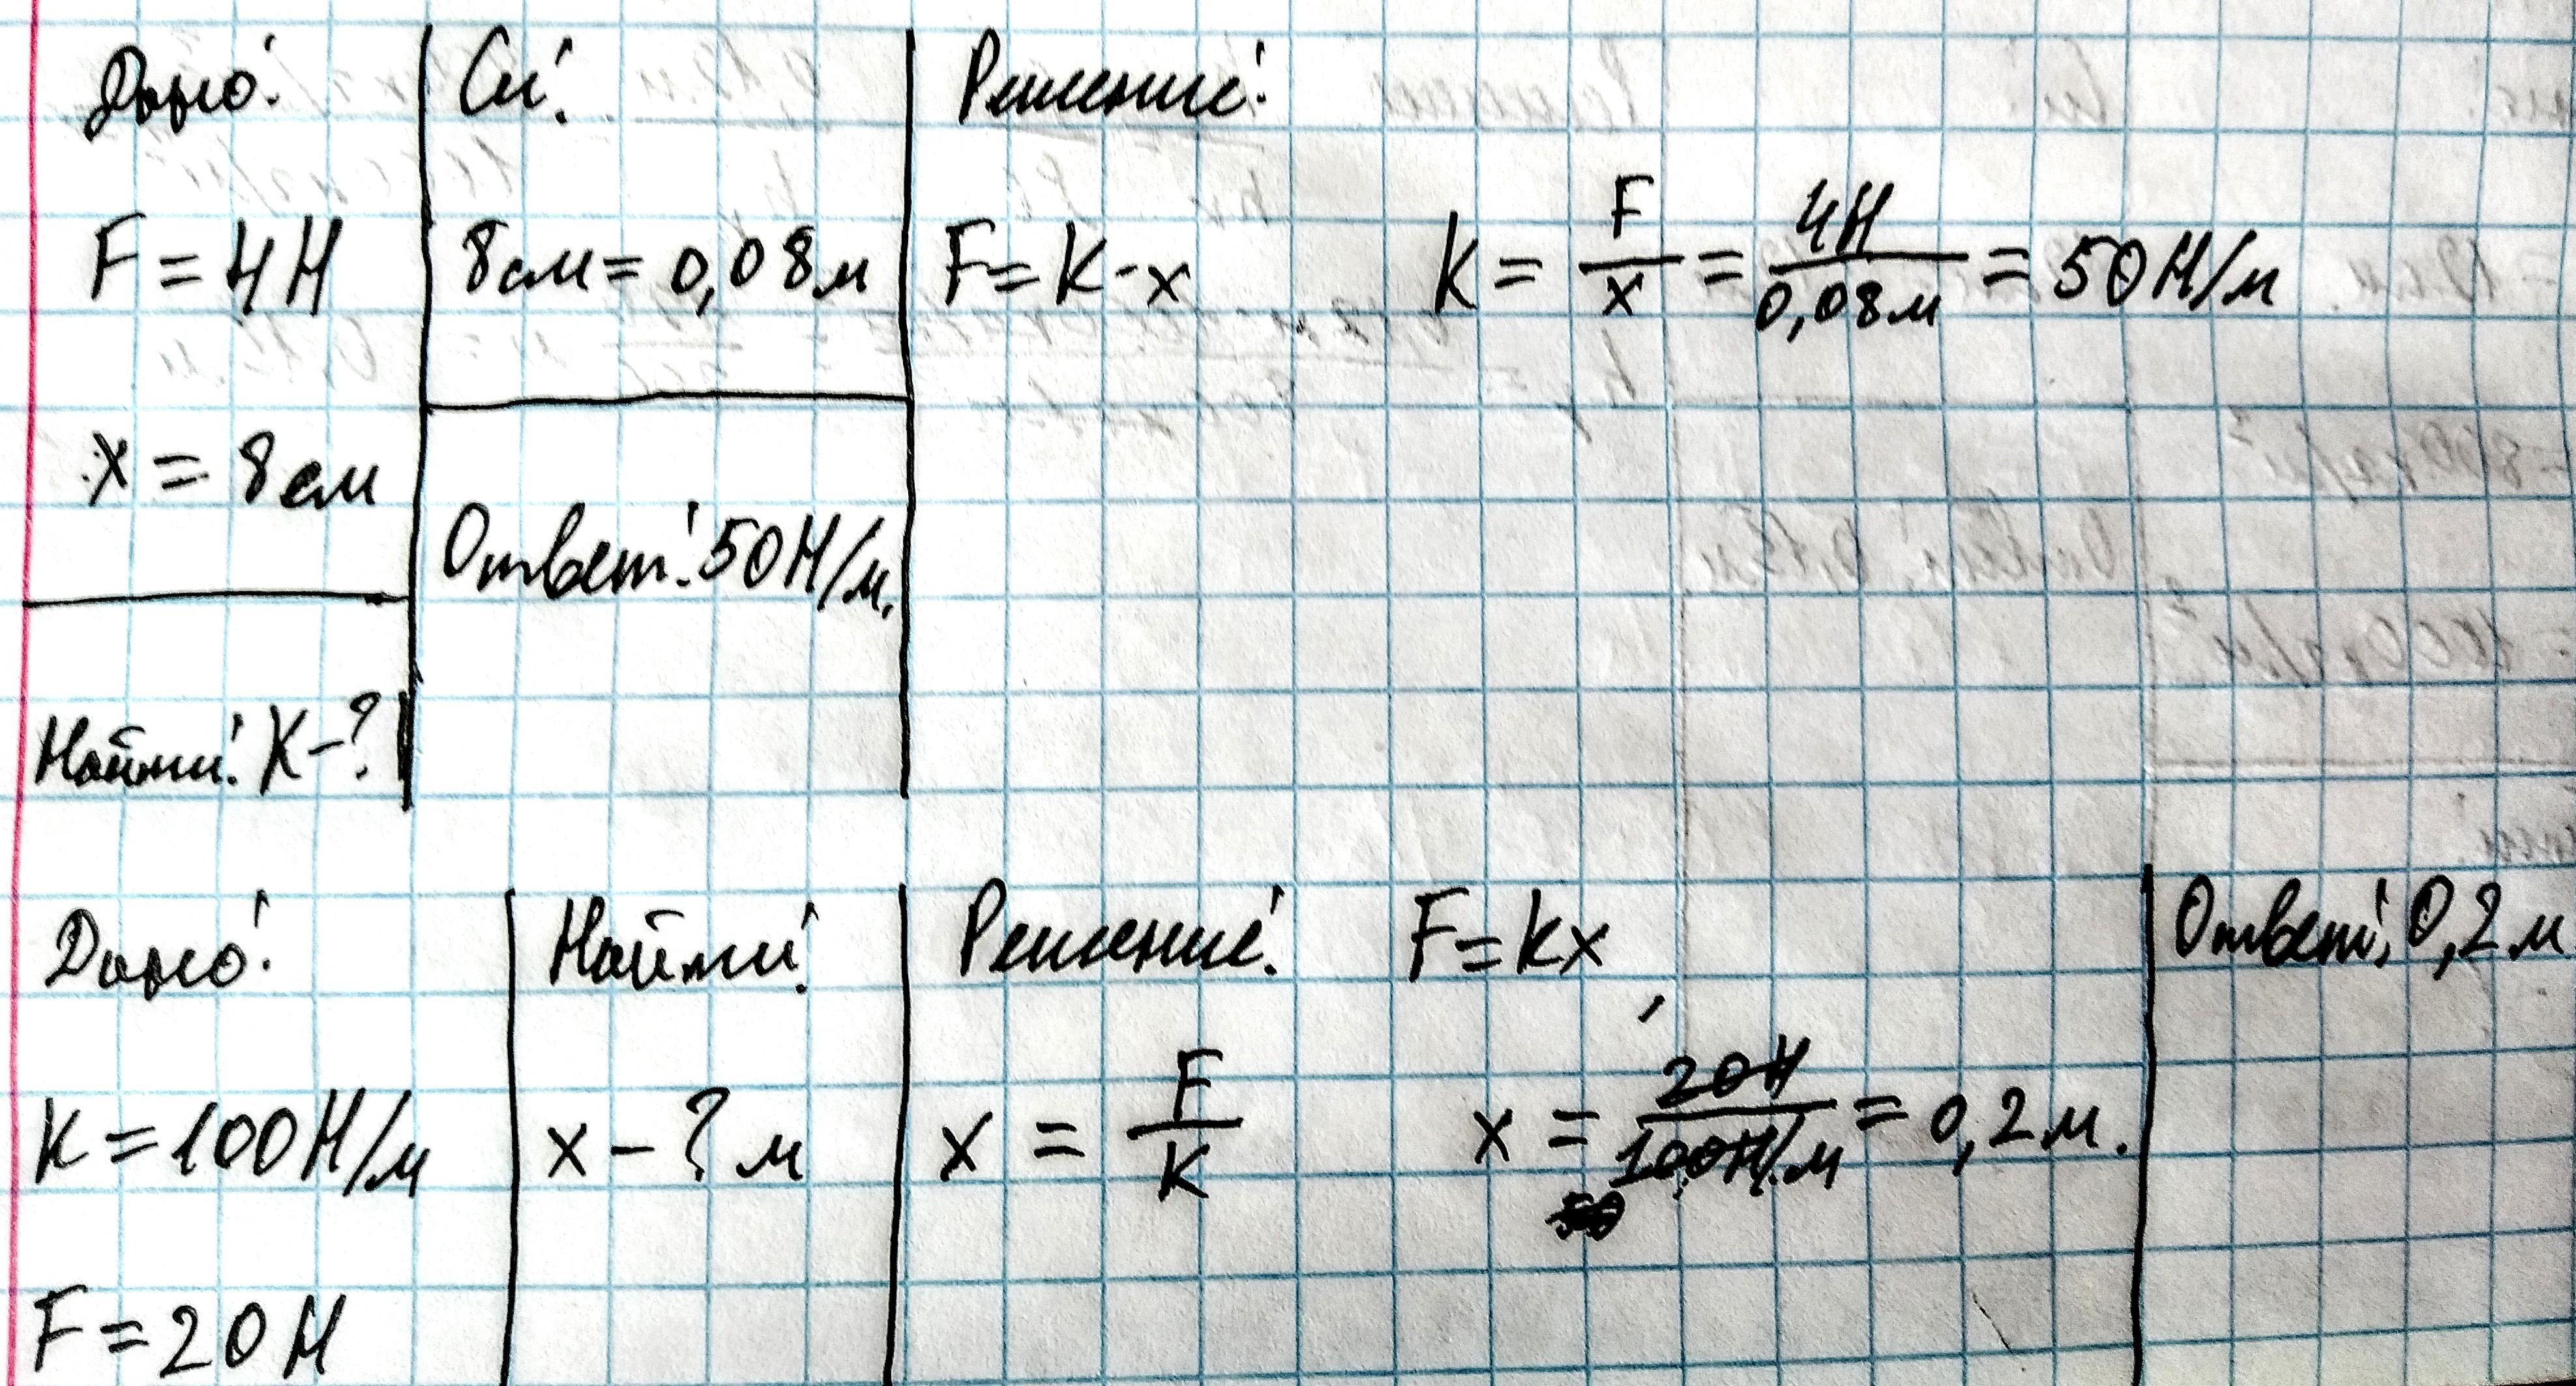 Дано:
F = 4Н
x = 8см
Найти: K - ?
Си:
8см = 0,08м
Ответ: 50Н/м.
Решение:
F = K · x
K = F/x = 4Н/0,08м = 50Н/м
Дано:
K = 100Н/м
F = 20Н
Найти:
x - ? м
Решение: F = Kx
x = F/K
x = 20Н/100Н/м = 0,2м.
Ответ: 0,2м